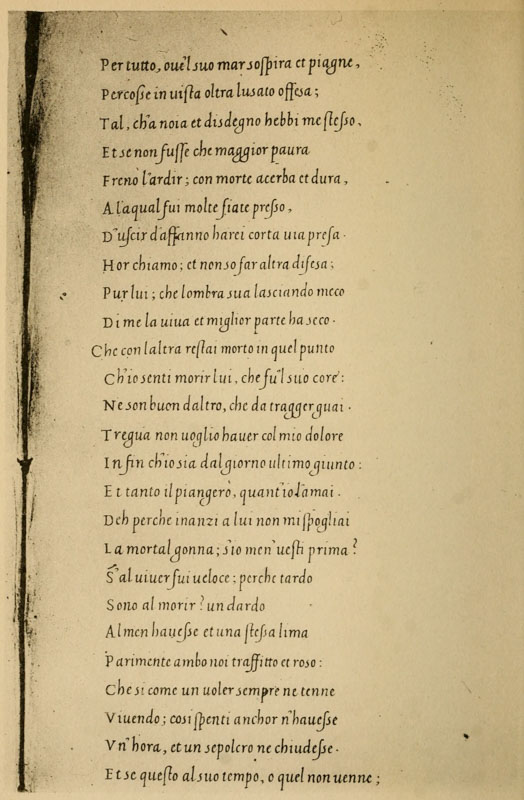 Per tutto, oue'l suo mar sospira et piagne,
Percosse in uista oltra lusato offesa;
Tal, ch'a noia et disdegno hebbi me stesso.
Et se non fusse che maggior paura
Freno l'ardir; con morte acerba et dura,
A laqual fui molte fiate presso,
D'uscir d'affanno harei corta uia presa.
Hor chiamo; et non so far altra difesa;
Pur lui; che lombra sua lasciando meco
Di me la uiua et miglior parte ha seco.
Che con laltra restai morto in quel punto
Ch'io senti morir lui, che fu'l suo core:
Ne son buon daltro, che da tragger guai.
Tregua non uoglio hauer col mio dolore
Infin ch'io sia dal giorno ultimo giunto:
Et tanto il piangerò, quant'io l'amai.
Deh perche inanzi a lui non mi spogliai
La mortal gonna; s'io men'uesti prima?
S'al uiuer fui ueloce; perche tardo
Sono al morir? un dardo
Almen hauesse et una stessa lima
Parimente ambo noi traffitto et roso:
Che si come un uoler sempre ne tenne
Viuendo; cosi spenti anchor n'hauesse
Vn'hora, et un sepolcro ne chiudesse.
Et se questo al suo tempo, o quel non uenne;